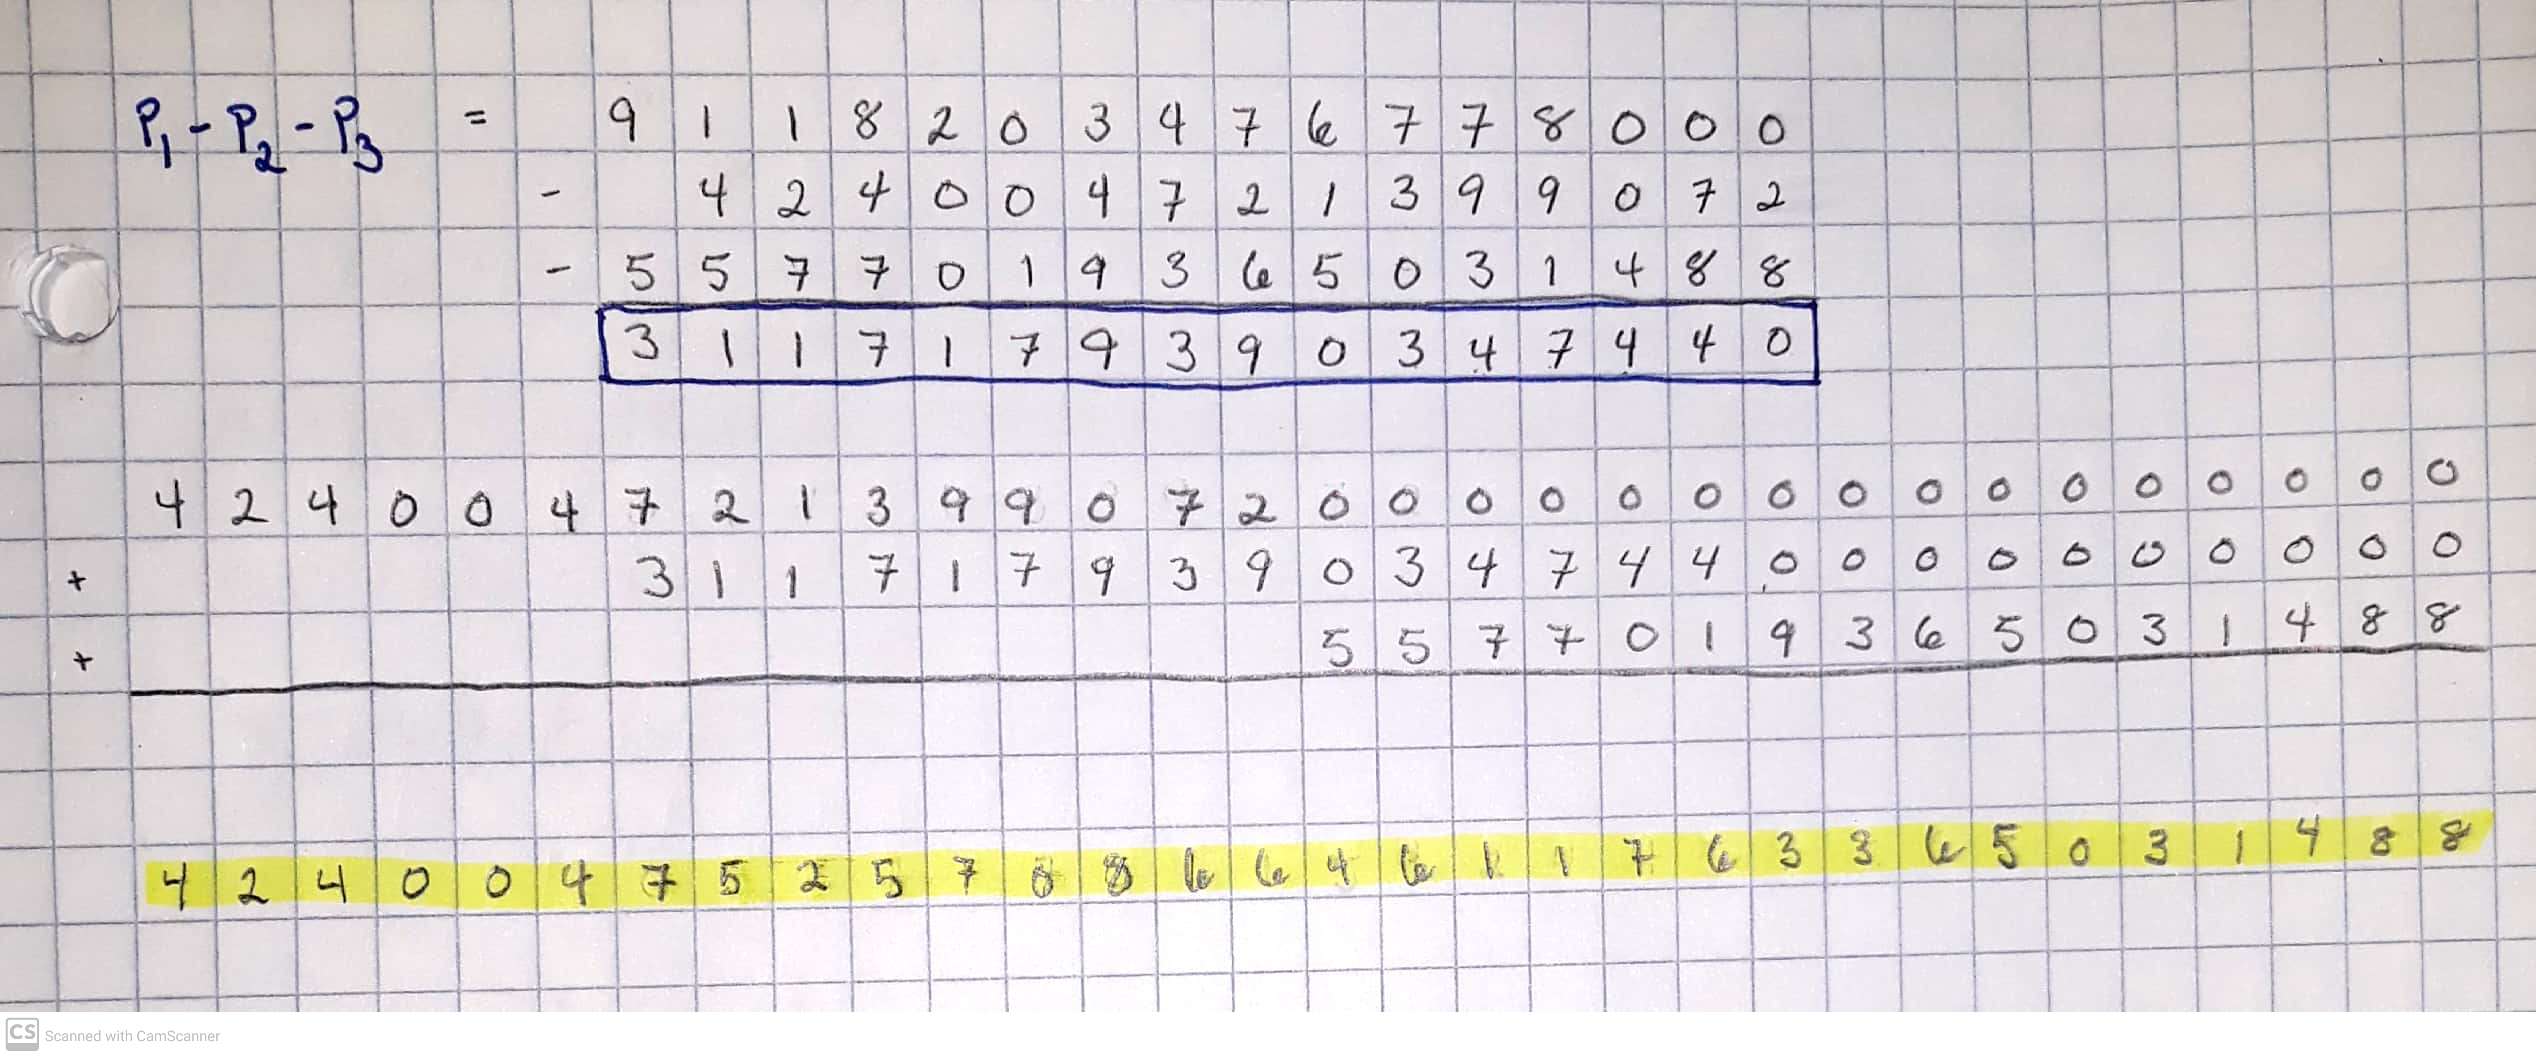 P₁ - P₂ - P₃ = 9 1 1 8 2 0 3 4 7 6 7 7 8 0 0 0
- 4 2 4 0 0 4 7 2 1 3 9 9 0 7 2
- 5 5 7 7 0 1 9 3 6 5 0 3 1 4 8 8
3 1 1 7 1 7 9 3 9 0 3 4 7 4 4 0
4 2 4 0 0 4 7 2 1 3 9 9 0 7 2 0 0 0 0 0 0 0 0 0 0 0 0 0 0 0 0
+ 3 1 1 7 1 7 9 3 9 0 3 4 7 4 4 0 0 0 0 0 0 0 0 0
+ 5 5 7 7 0 1 9 3 6 5 0 3 1 4 8 8
4 2 4 0 0 4 7 5 2 5 7 0 8 6 6 4 6 1 1 7 6 3 3 6 5 0 3 1 4 8 8
CS Scanned with CamScanner